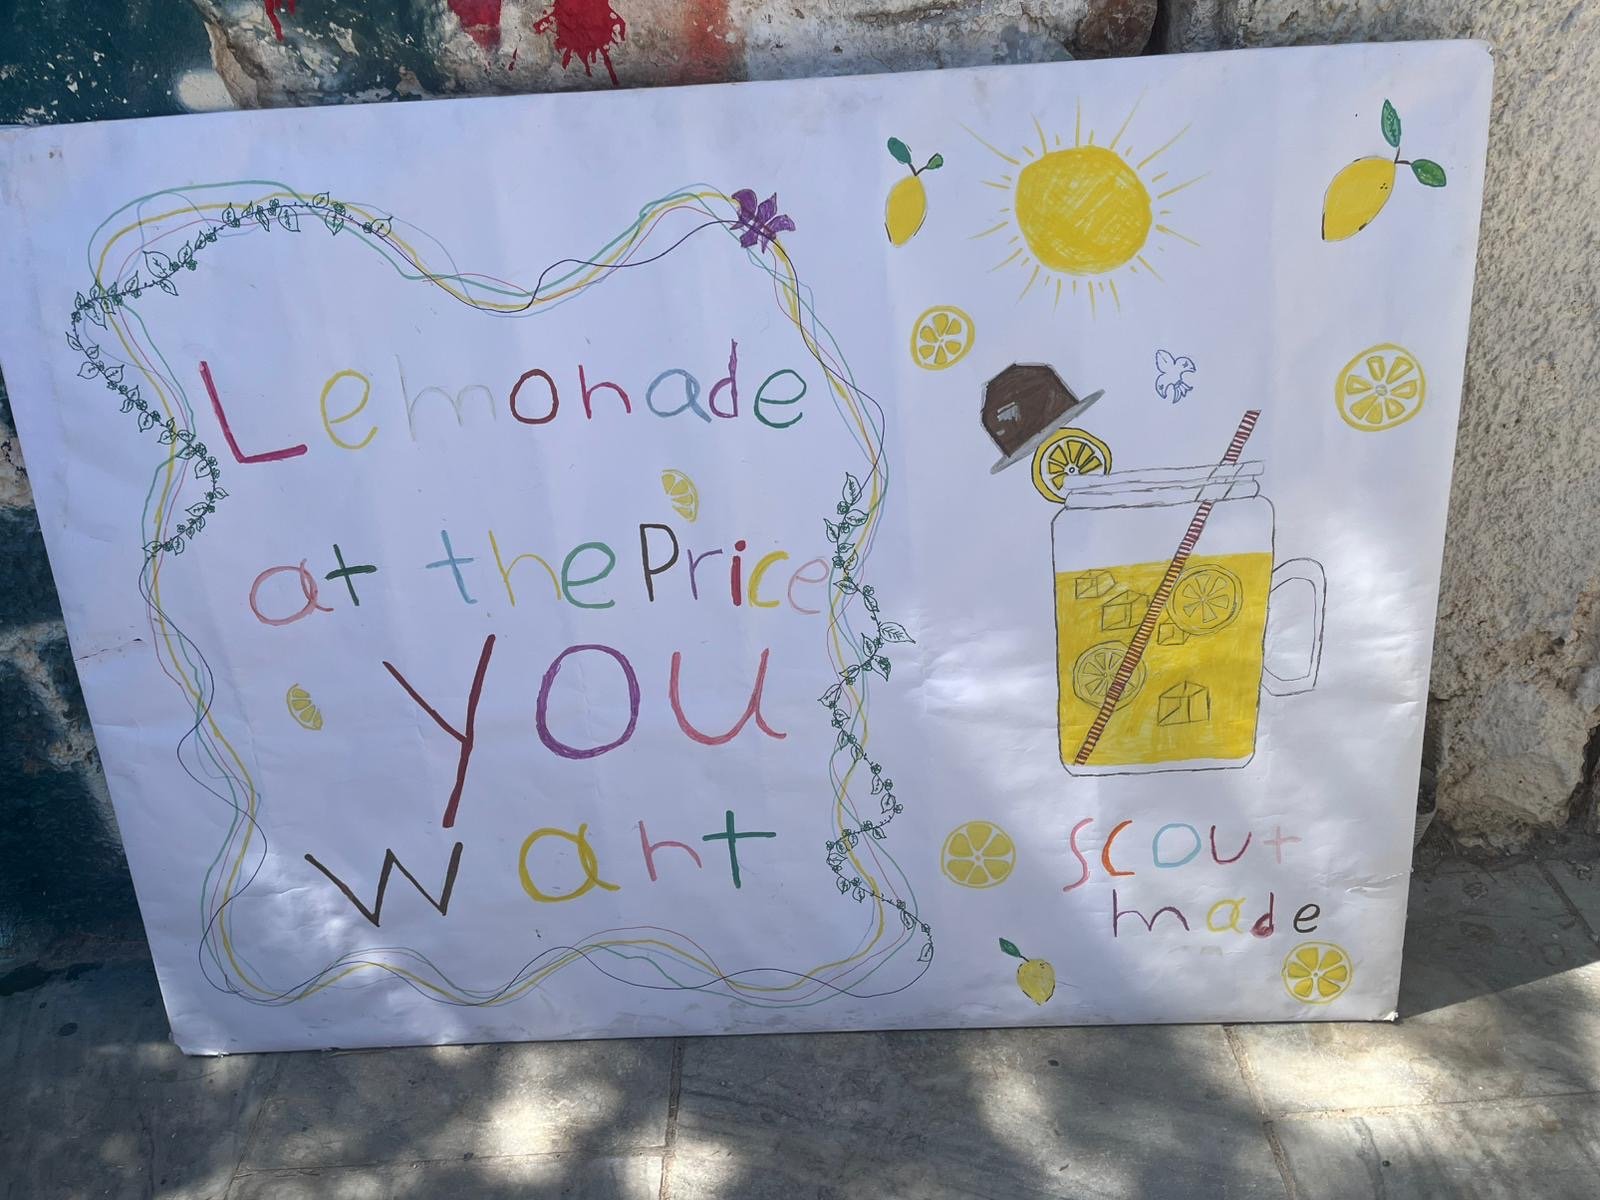 Lemonade
at the Price
YOU
want
scout
made